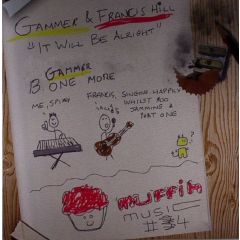 GAMMER & FRANCIS HILL
"IT WILL BE ALRIGHT"
GAMMER
B. ONE MORE
ME, SPIN
FRANCIS, SINGIN HAPPILY
WHILST
JAMMING 2
PART ONE
MUFFIN
MUSIC
#34